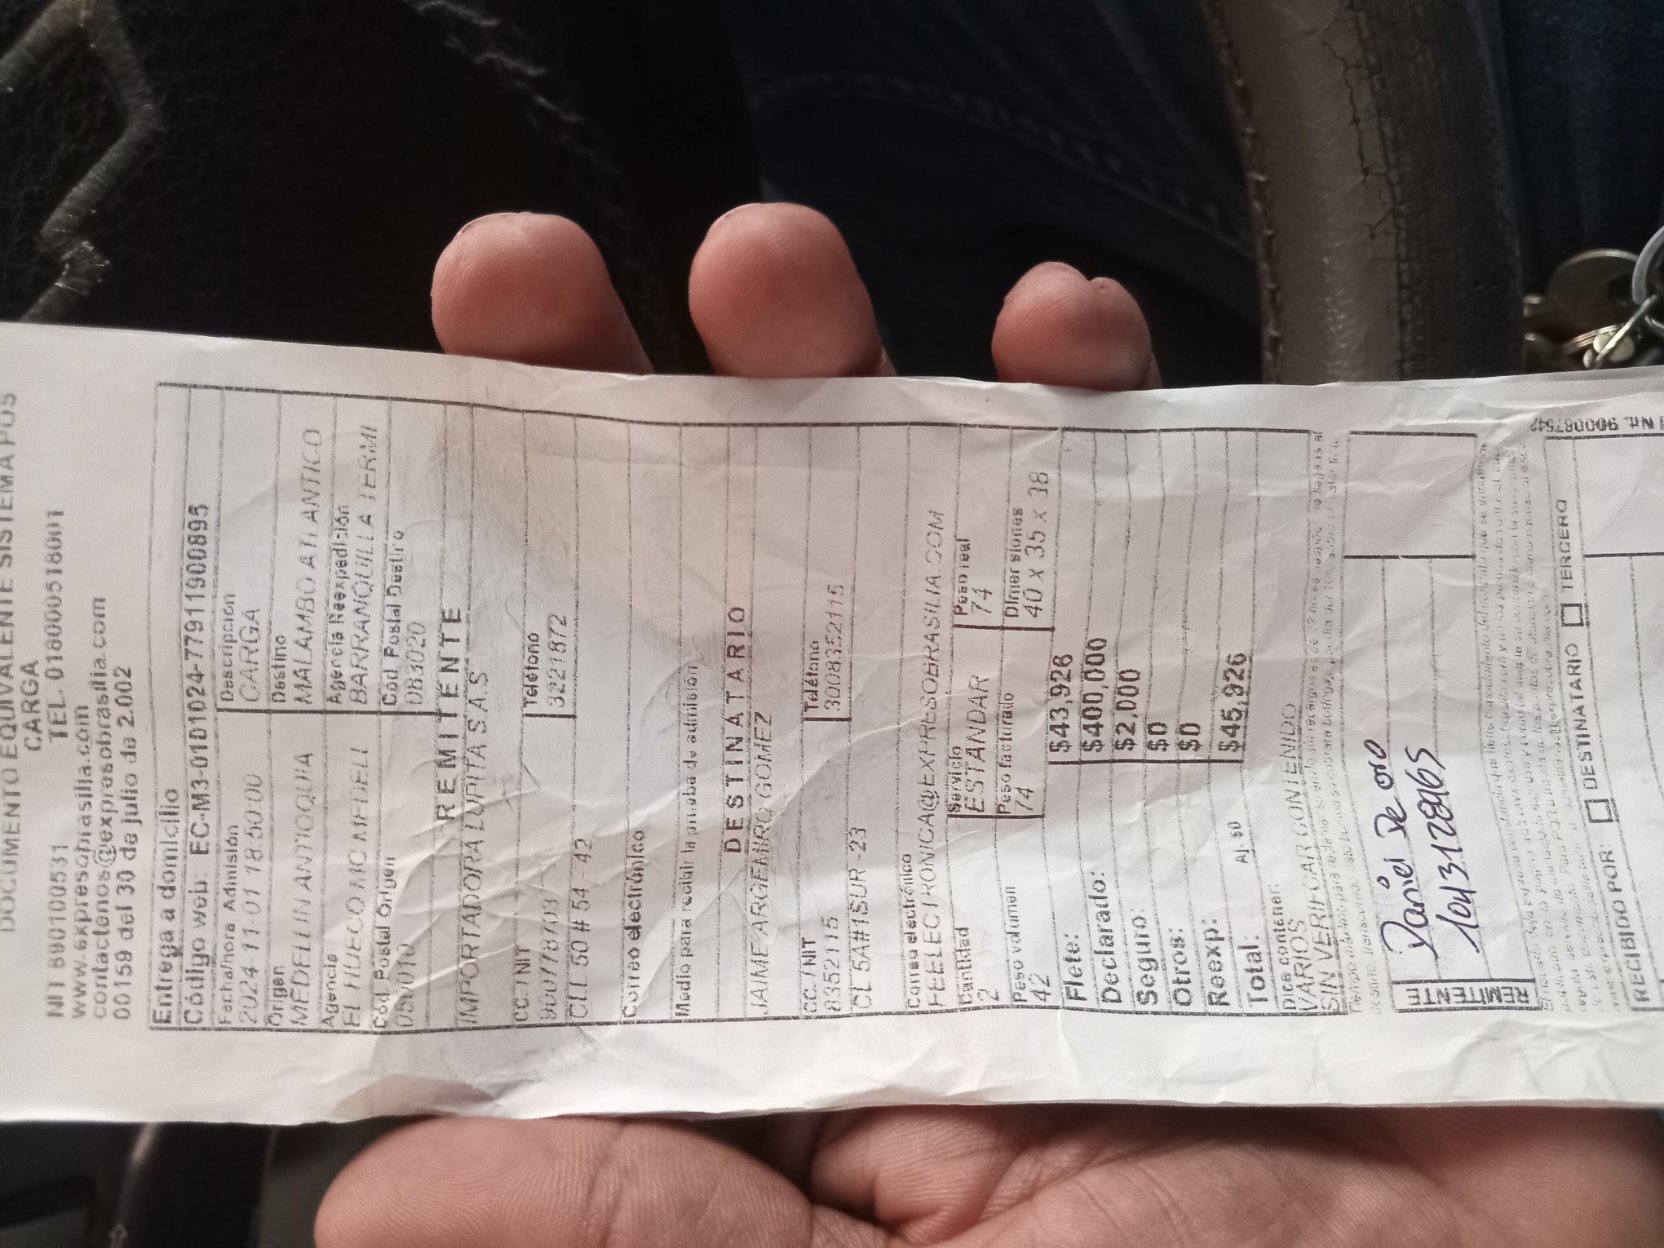 DOCUMENTO EQUIVALENTE SISTEMA POS
CARGA
NIT 890100531 TEL. 018000518001
www.expresobrasilia.com
contactenos@expresobrasilia.com
00159 del 30 de julio de 2.002
Entrega a domicilio
Código web: EC-M3-0101024-77911900895
Fecha/hora Admisión Descripción
2024-11-01 18:50:00 CARGA
Origen Destino
MEDELLIN ANTIOQUIA MALAMBO ATLANTICO
Agencia Agencia Reexpedición
EL HUECO MC MEDELL BARRANQUILLA TERMI
Cód. Postal Origen Cód Postal Destino
050010 083020
REMITENTE
IMPORTADORA LUPITA S A S
CC./NIT Teléfono
900778703 3221872
CLL 50 # 54 - 42
Correo electrónico
Medio para recibir la prueba de admisión
DESTINATARIO
JAIME ARGEMIRO GOMEZ
CC./NIT Teléfono
8352115 3008352115
CL 5A#1SUR -23
Correo electrónico
FEELECTRONICA@EXPRESOBRASILIA.COM
Cantidad Servicio Peso real
2 ESTANDAR 74
Peso volumen Peso facturado Dimensiones
42 74 40 x 35 x 38
Flete: $43,926
Declarado: $400,000
Seguro: $2,000
Otros: $0
Reexp: $0
Total: Aj. $0 $45,926
Dice contener:
VARIOS
SIN VERIFICAR CONTENIDO
REMITENTE
Daniel De oro
1043128965
REMITENTE
RECIBIDO POR: DESTINATARIO TERCERO
Nit. 900087542